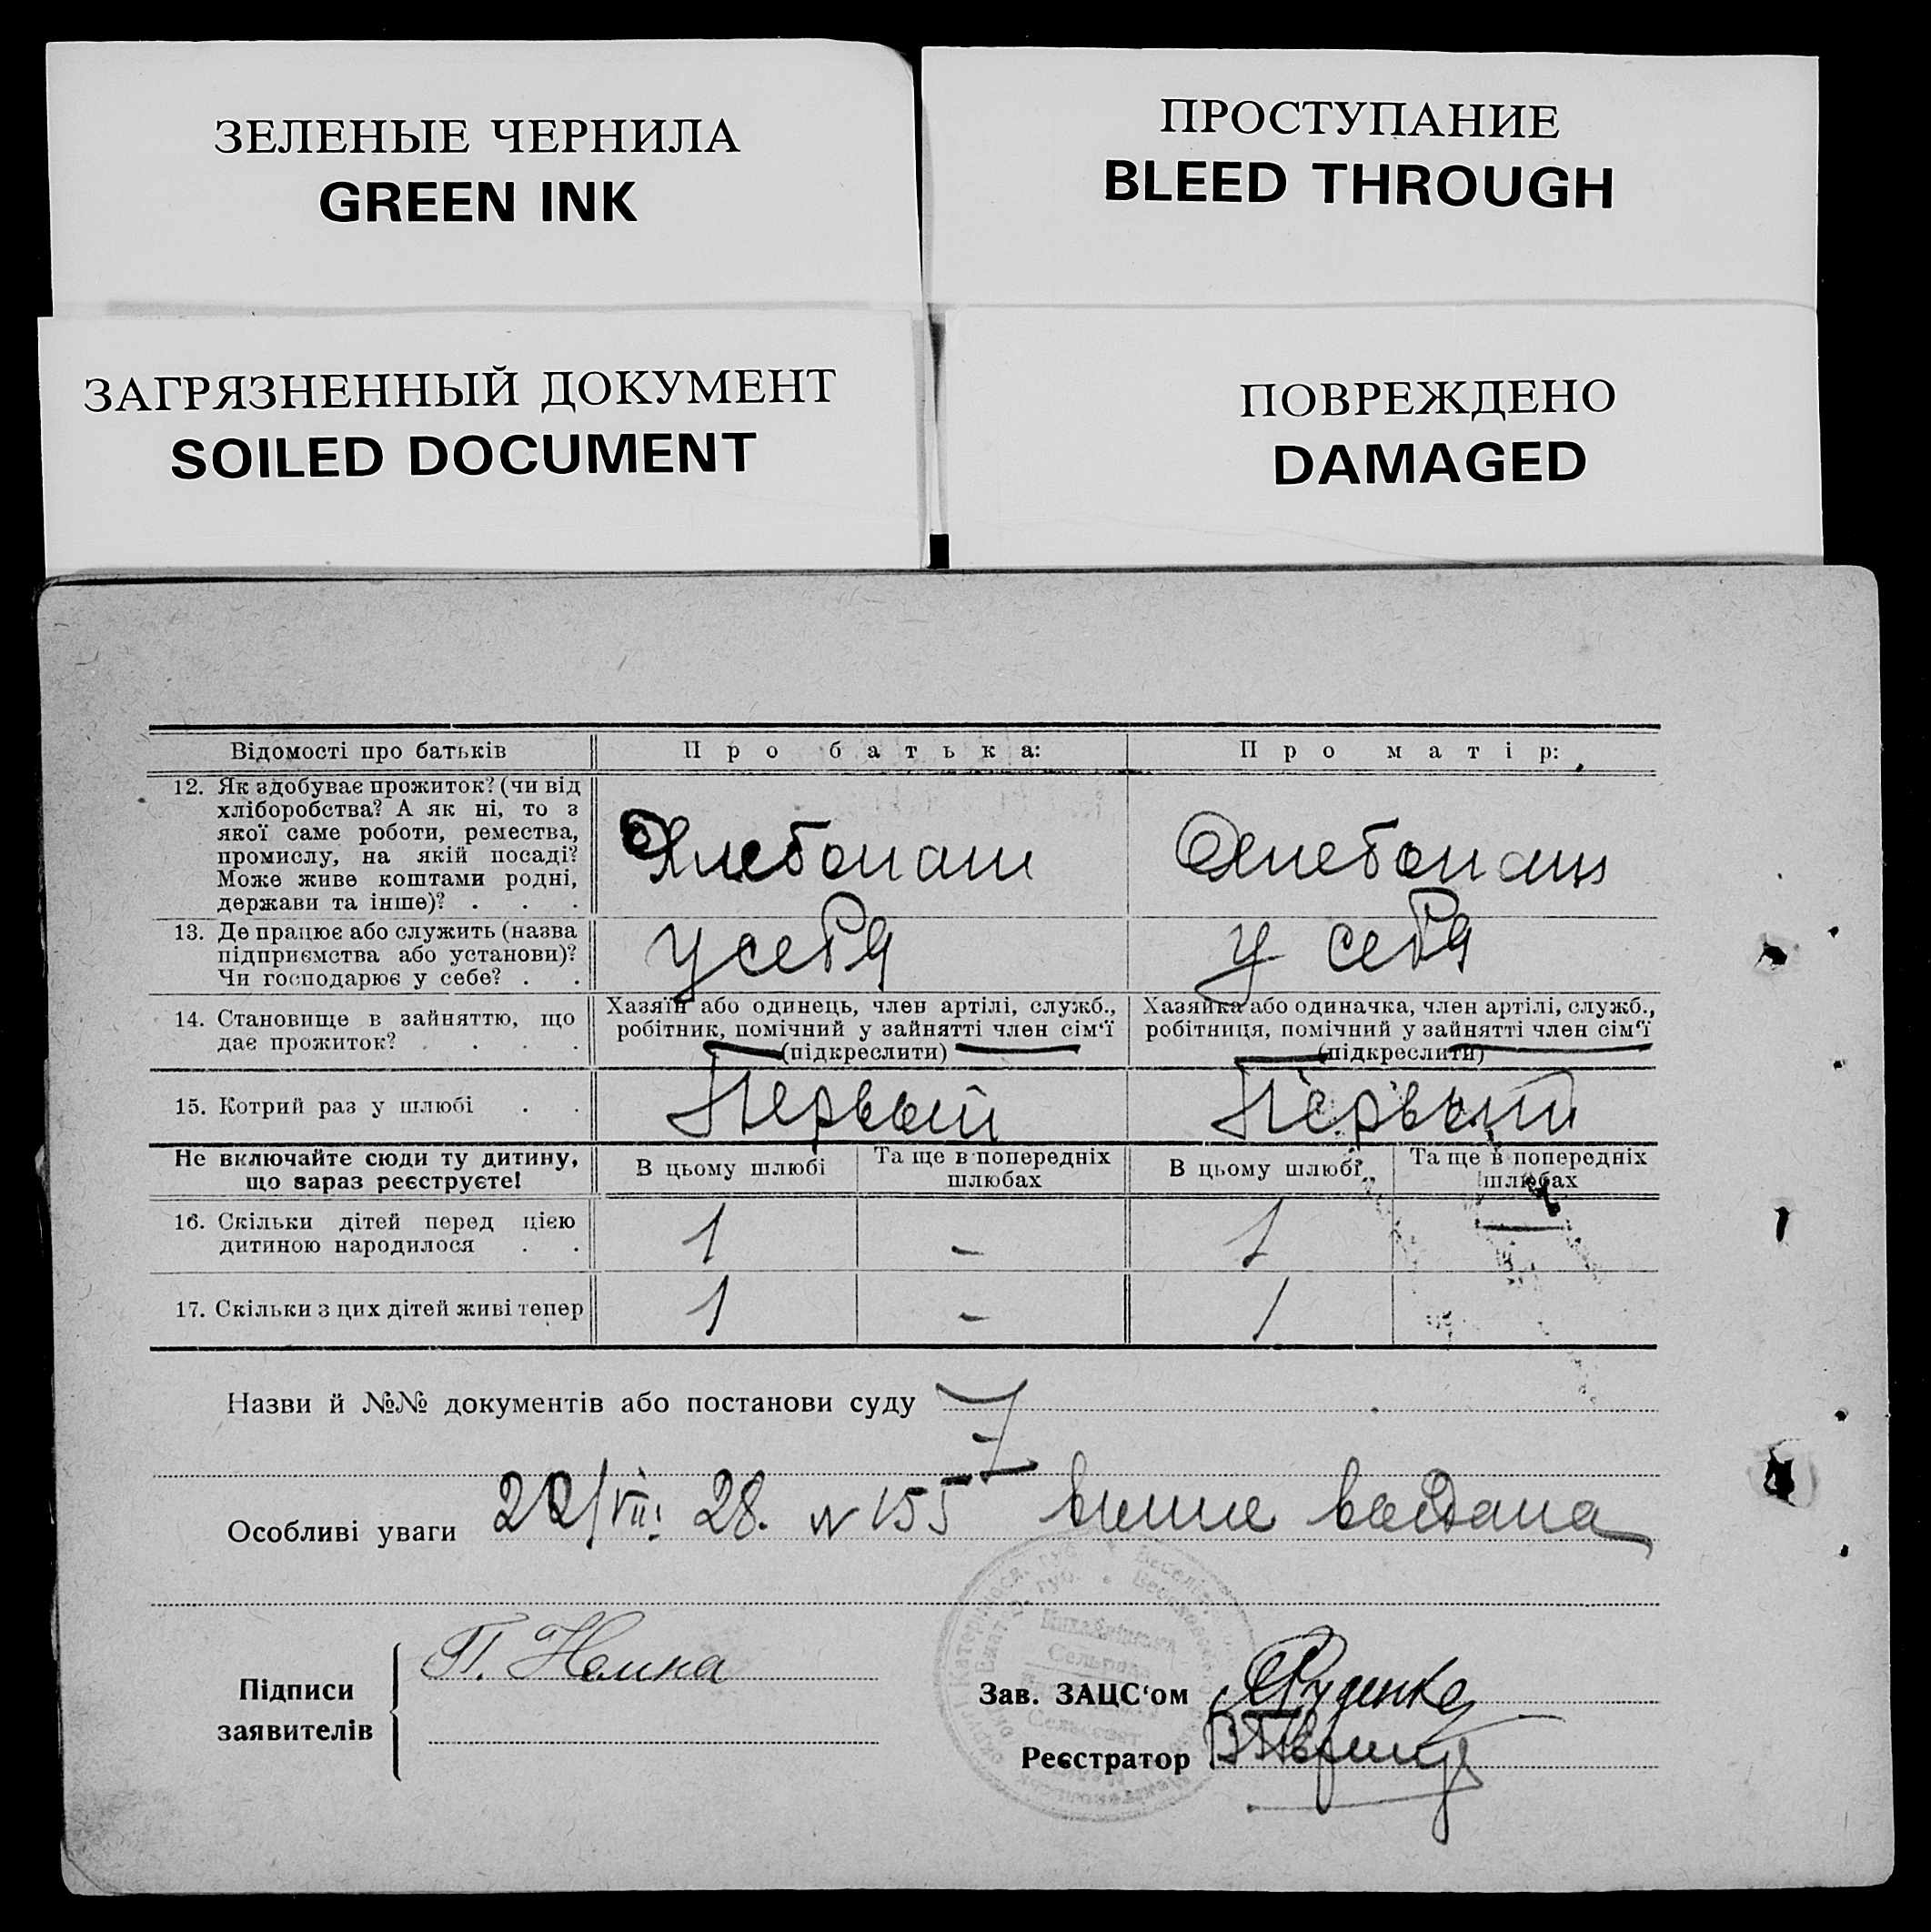 ЗЕЛЕНЫЕ ЧЕРНИЛА
GREEN INK
ПРОСТУПАНИЕ
BLEED THROUGH
ЗАГРЯЗНЕННЫЙ ДОКУМЕНТ
SOILED DOCUMENT
ПОВРЕЖДЕНО
DAMAGED
Відомості про батьків Про батька: Про матір:
12. Як здобуває прожиток? (чи від
хліборобства? А як ні, то з
якої саме роботи, ремества,
промислу, на якій посаді?
Може живе коштами родні,
держави та інше)? . . .
Хлебопаш Хлебопащ
13. Де працює або служить (назва
підприємства або установи)?
Чи господарює у себе? . .
у себя у себя
14. Становище в зайняттю, що
дає прожиток? . . . .
Хазяїн або одинець, член артілі, служб.,
робітник, помічний у зайнятті член сім'ї
(підкреслити)
Хазяйка або одиначка, член артілі, служб.,
робітниця, помічний у зайнятті член сім'ї
(підкреслити)
15. Котрий раз у шлюбі . . Первый Первый
Не включайте сюди ту дитину,
що зараз реєструєте!
В цьому шлюбі Та ще в попередніх
шлюбах
В цьому шлюбі Та ще в попередніх
шлюбах
16. Скільки дітей перед цією
дитиною народилося . .
1 - 1 —
17. Скільки з цих дітей живі тепер 1 - 1
Назви й №№ документів або постанови суду
Особливі уваги 22/VIII 28. N 155
Підписи
заявителів
П.
Зав. ЗАЦС'ом Руденко
Реєстратор